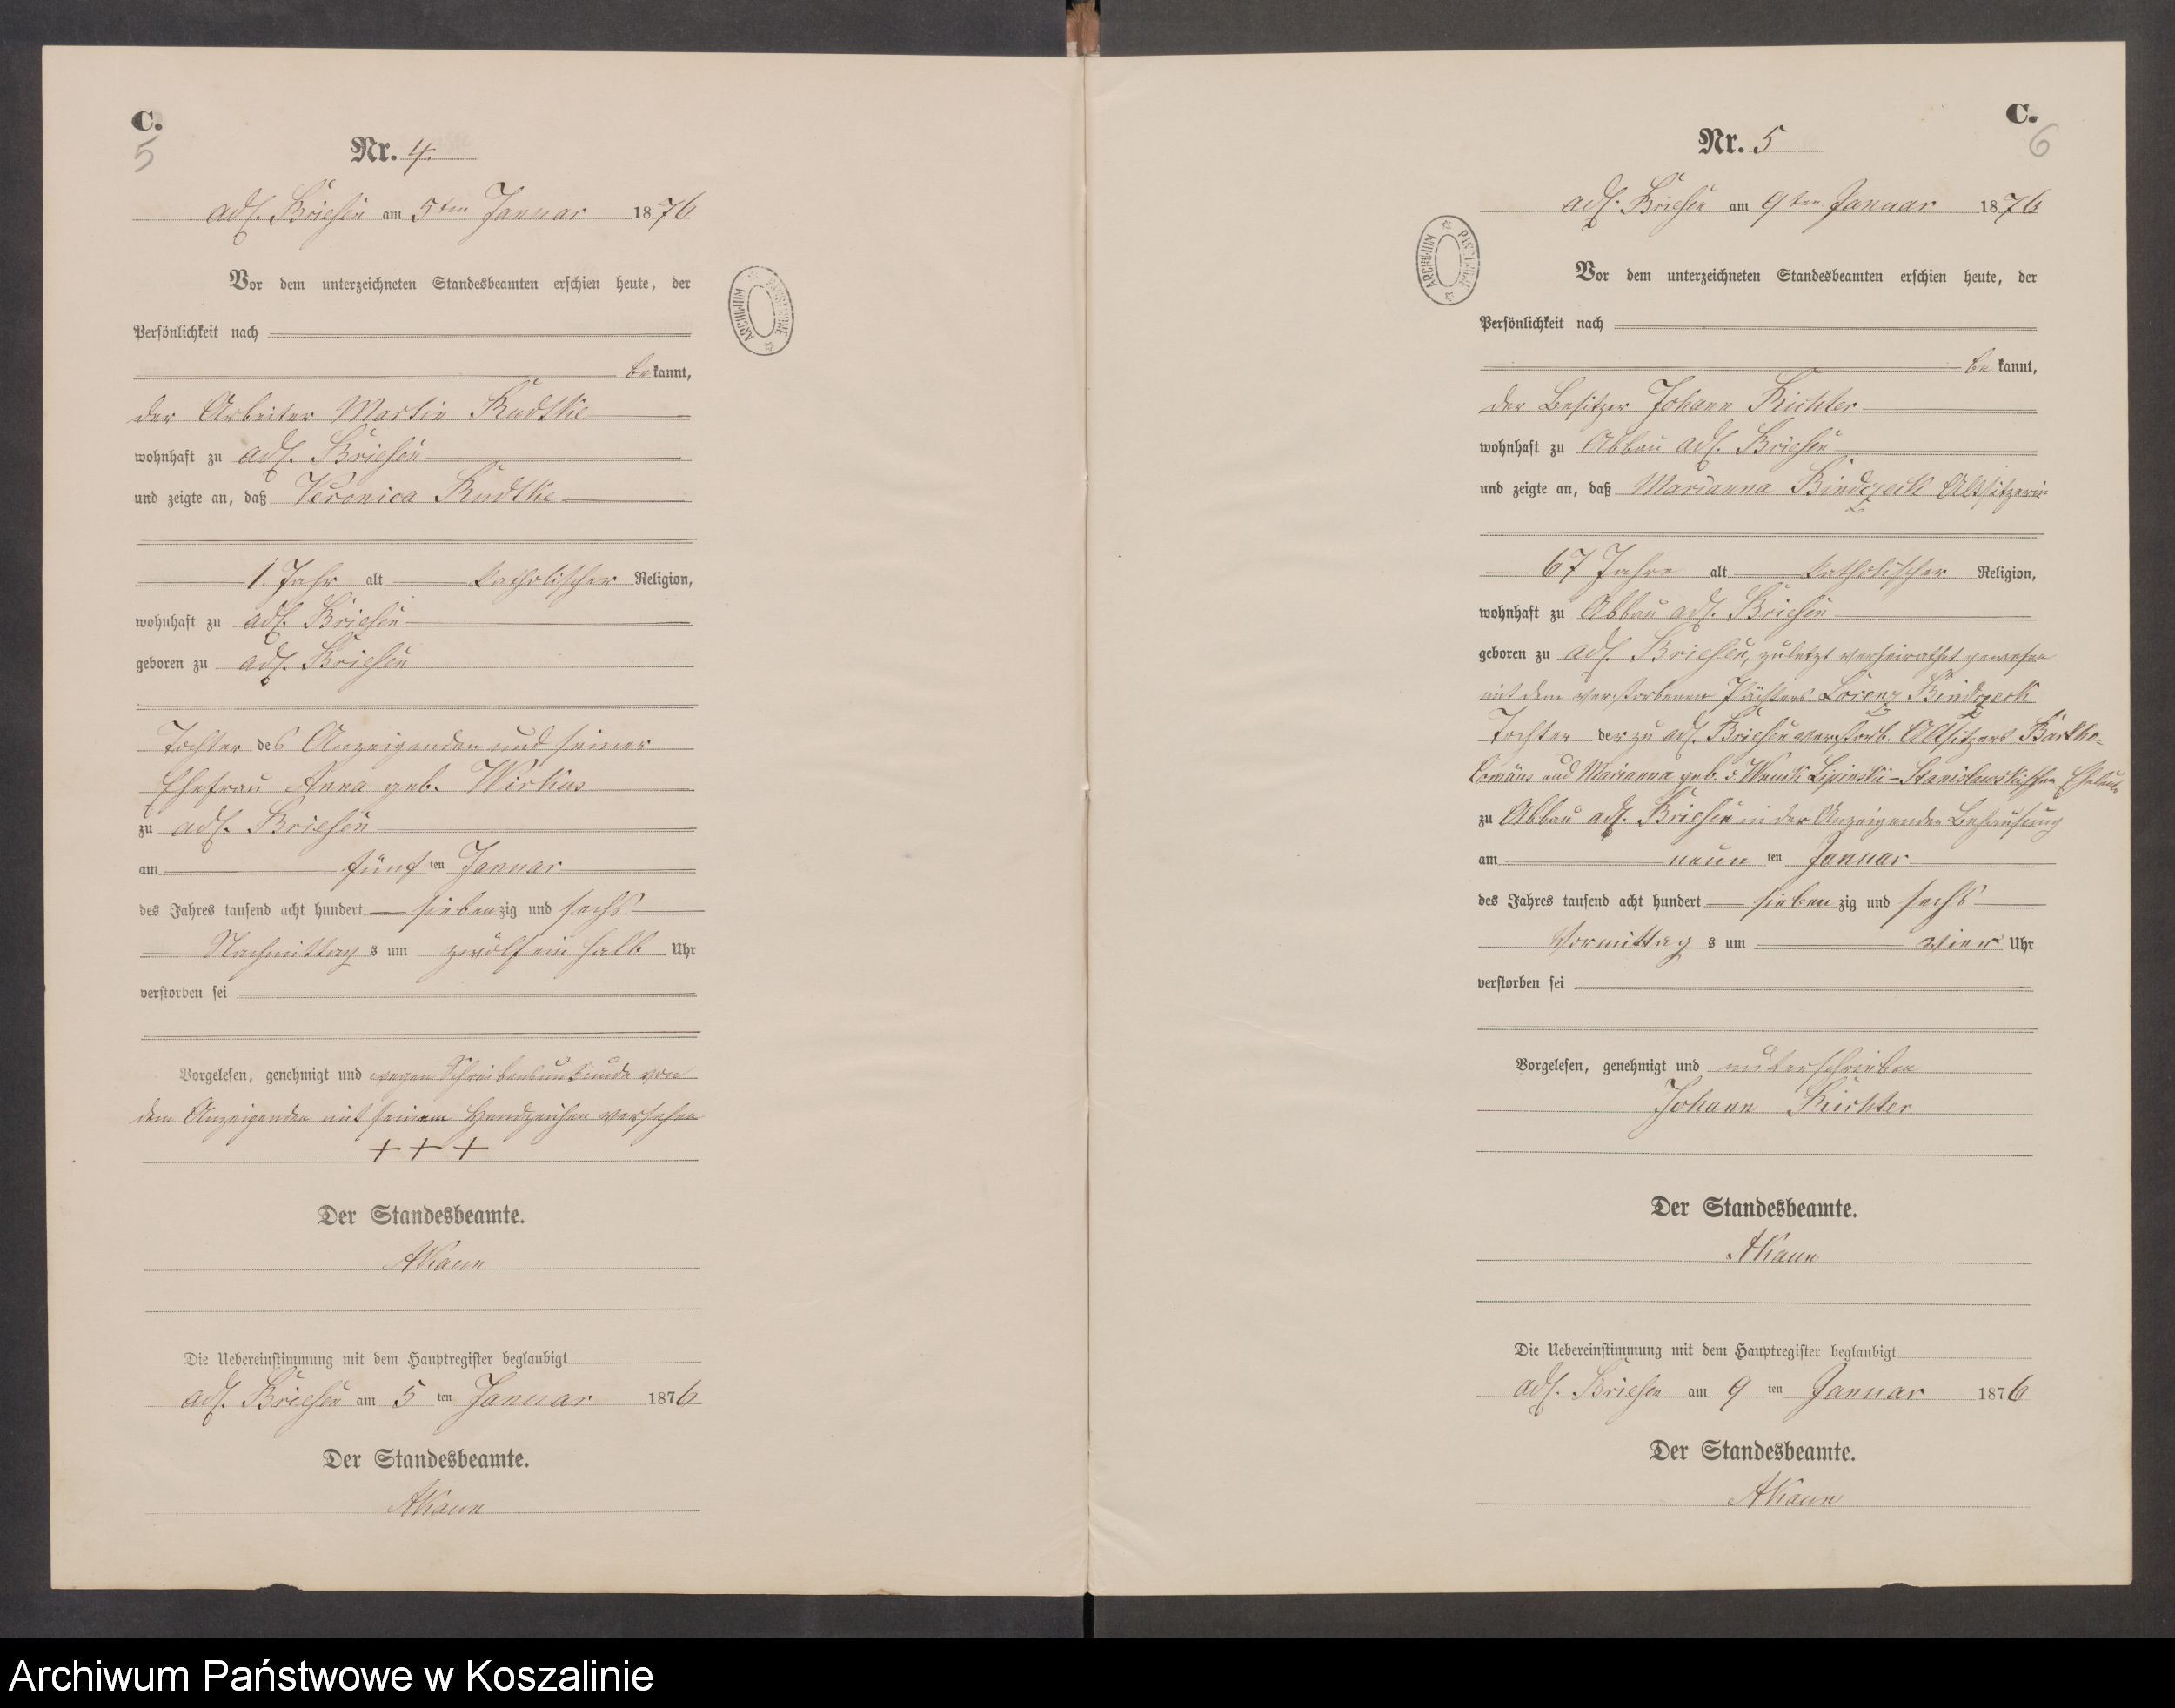 C.
5
Nr. 4.
adl. Briesen am 5ten Januar 1876
Vor dem unterzeichneten Standesbeamten erschien heute, der
Persönlichkeit nach
bekannt,
der Arbeiter Martin Rudtke
wohnhaft zu adl. Briesen
und zeigte an, daß Veronica Rudtke
1. Jahr alt katholischer Religion,
wohnhaft zu adl. Briesen
geboren zu adl. Briesen
Tochter des Anzeigenden und seiner
Ehefrau Anna geb. Wirkus
zu adl. Briesen
am fünften Januar
des Jahres tausend acht hundert siebenzig und sechs
Nachmittags um zwölf ein halb Uhr
verstorben sei
Vorgelesen, genehmigt und wegen Schreibensunkunde von
dem Anzeigenden mit seinem Handzeichen versehen
+ + +
Der Standesbeamte.
Die Uebereinstimmung mit dem Hauptregister beglaubigt
adl. Briesen am 5 ten Januar 1876
Der Standesbeamte.
ARCHIWUM PAŃSTWOWE
C.
6
Nr. 5
adl. Briesen am 9ten Januar 1876
Vor dem unterzeichneten Standesbeamten erschien heute, der
Persönlichkeit nach
bekannt,
der Besitzer Johann Richter
wohnhaft zu Abbau adl. Briesen
und zeigte an, daß Marianna Altsitzerin
67 Jahre alt katholischer Religion,
wohnhaft zu Abbau adl. Briesen
geboren zu adl. Briesen, zuletzt verheirathet gewesen
mit dem verstorbenen Lorenz
Tochter der zu adl. Briesen verstorb. Altsitzers Bartho-
lomäus und Marianna geb. Lipinski-Stanislawskischen Eheleute
zu Abbau adl. Briesen in der Anzeigenden Behausung
am neunten Januar
des Jahres tausend acht hundert siebenzig und sechs
Vormittags um vier Uhr
verstorben sei
Vorgelesen, genehmigt und unterschrieben
Johann Richter
Der Standesbeamte.
Die Uebereinstimmung mit dem Hauptregister beglaubigt
adl. Briesen am 9 ten Januar 1876
Der Standesbeamte.
ARCHIWUM PAŃSTWOWE
Archiwum Państwowe w Koszalinie